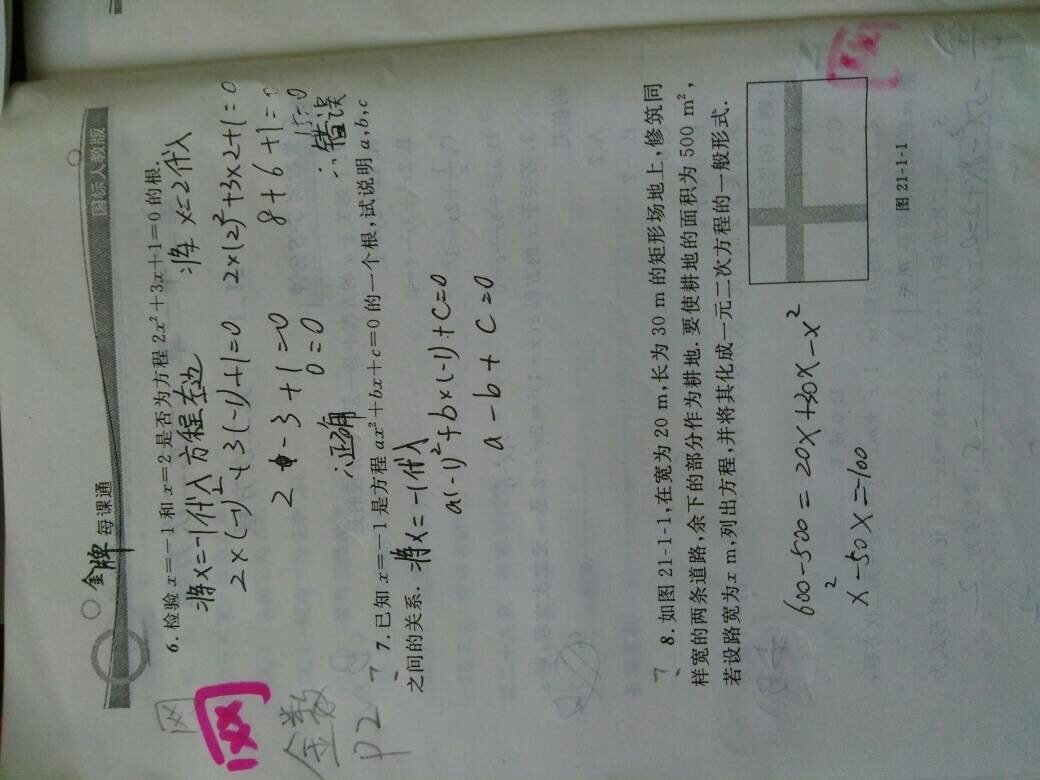 金牌每课通
国标人教版
6.检验x=-1和x=2是否为方程2x²+3x+1=0的根.
将x=-1代入方程左边
2×(-1)²+3(-1)+1=0
2-3+1=0
0=0
∴正确
将x=2代入
2×(2)²+3×2+1=0
8+6+1=0
15=0
∴错误
7.已知x=-1是方程ax²+bx+c=0的一个根,试说明a,b,c
之间的关系.
将x=-1代入
a(-1)²+b×(-1)+c=0
a-b+c=0
8.如图21-1-1,在宽为20 m,长为30 m的矩形场地上,修筑同
样宽的两条道路,余下的部分作为耕地.要使耕地的面积为500 m²,
若设路宽为x m,列出方程,并将其化成一元二次方程的一般形式.
600-500=20x+30x-x²
x²-50x=-100
图21-1-1
金数
P2